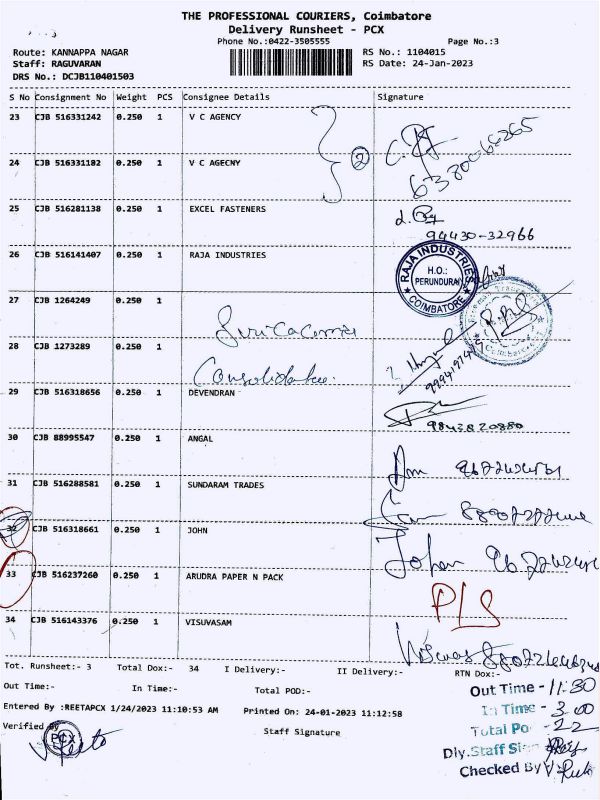 THE PROFESSIONAL COURIERS, Coimbatore
Delivery Runsheet - PCX
Phone No.:0422-3505555 Page No.:3
Route: KANNAPPA NAGAR RS No.: 1104015
Staff: RAGUVARAN RS Date: 24-Jan-2023
DRS No.: DCJB110401503
S No Consignment No Weight PCS Consignee Details Signature
23 CJB 516331242 0.250 1 V C AGENCY
24 CJB 516331182 0.250 1 V C AGECNY 2
25 CJB 516281138 0.250 1 EXCEL FASTENERS
94430-32966
26 CJB 516141407 0.250 1 RAJA INDUSTRIES
RAJA INDUSTRIES
H.O.:
PERUNDURAI
COIMBATORE
27 CJB 1264249 0.250 1
28 CJB 1273289 0.250 1
29 CJB 516318656 0.250 1 DEVENDRAN
9843820880
30 CJB 88995547 0.250 1 ANGAL
31 CJB 516288581 0.250 1 SUNDARAM TRADES
32 CJB 516318661 0.250 1 JOHN
33 CJB 516237260 0.250 1 ARUDRA PAPER N PACK PLS
34 CJB 516143376 0.250 1 VISUVASAM
Tot. Runsheet:- 3 Total Dox:- 34 I Delivery:- II Delivery:- RTN Dox:-
Out Time:- In Time:- Total POD:-
Out Time - 11:30
In Time - 3.00
Entered By :REETAPCX 1/24/2023 11:10:53 AM Printed On: 24-01-2023 11:12:58
Total Po - 22
Verified By Staff Signature
PCX
Dly.Staff Si
Checked By